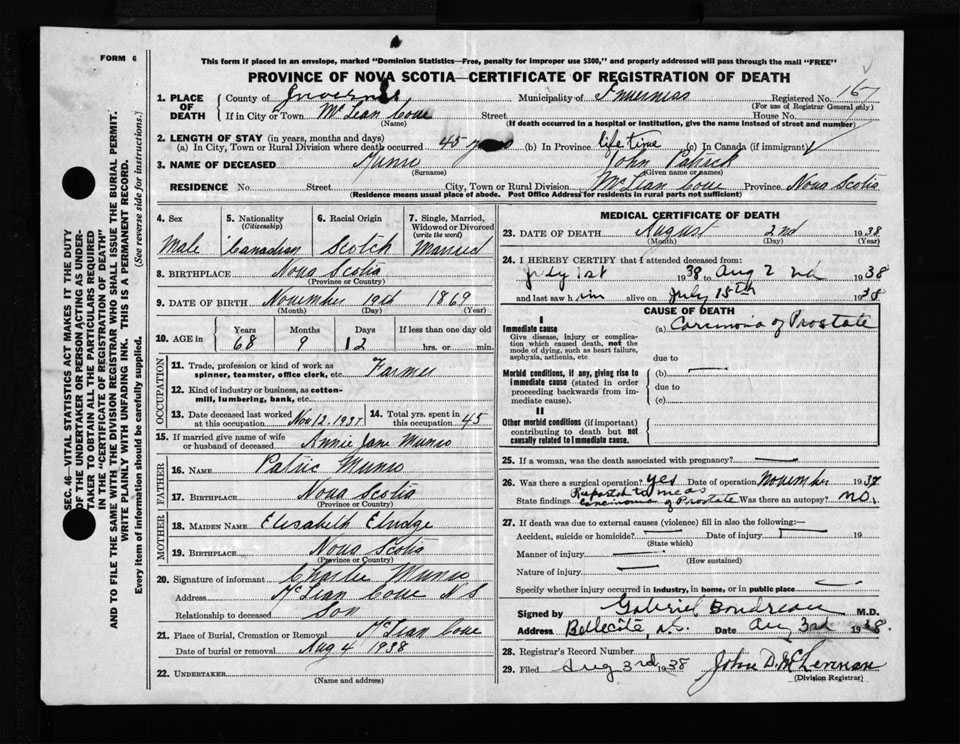 FORM 6
This form if placed in an envelope, marked "Dominion Statistics—Free, penalty for improper use $300," and properly addressed will pass through the mail "FREE"
PROVINCE OF NOVA SCOTIA—CERTIFICATE OF REGISTRATION OF DEATH
1. PLACE OF DEATH County of Inverness Municipality of Inverness Registered No. 167
(For use of Registrar General only)
If in City or Town Mc Lean Cove Street House No.
(Name) (If death occurred in a hospital or institution, give the name instead of street and number)
2. LENGTH OF STAY (in years, months and days)
(a) In City, Town or Rural Division where death occurred 45 years (b) In Province life time (c) In Canada (if immigrant)
3. NAME OF DECEASED Munro John Patrick
(Surname) (Given name or names)
RESIDENCE No. Street City, Town or Rural Division McLean Cove Province Nova Scotia
(Residence means usual place of abode. Post Office Address for residents in rural parts not sufficient)
SEC. 46—VITAL STATISTICS ACT MAKES IT THE DUTY
OF THE UNDERTAKER OR PERSON ACTING AS UNDER-
TAKER TO OBTAIN ALL THE PARTICULARS REQUIRED
IN THE "CERTIFICATE OF REGISTRATION OF DEATH"
AND TO FILE THE SAME WITH THE DIVISION REGISTRAR WHO SHALL ISSUE THE BURIAL PERMIT.
WRITE PLAINLY WITH UNFADING INK. THIS IS A PERMANENT RECORD.
Every item of information should be carefully supplied. (See reverse side for instructions.)
4. Sex 5. Nationality 6. Racial Origin 7. Single, Married,
(Citizenship) Widowed or Divorced
(write the word)
Male Canadian Scotch Married
8. BIRTHPLACE Nova Scotia
(Province or Country)
9. DATE OF BIRTH November 19th 1869
(Month) (Day) (Year)
10. AGE in Years Months Days If less than one day old
68 9 12 hrs. or min.
OCCUPATION
11. Trade, profession or kind of work as
spinner, teamster, office clerk, etc. Farmer
12. Kind of industry or business, as cotton-
mill, lumbering, bank, etc.
13. Date deceased last worked at this occupation Nov 12, 1937 14. Total yrs. spent in this occupation 45
15. If married give name of wife
or husband of deceased Annie Jane Munro
FATHER
16. NAME Patric Munro
17. BIRTHPLACE Nova Scotia
(Province or Country)
MOTHER
18. MAIDEN NAME Elisabeth Elridge
19. BIRTHPLACE Nova Scotia
(Province or Country)
20. Signature of informant Charlie Munro
Address McLean Cove N S
Relationship to deceased Son
21. Place of Burial, Cremation or Removal McLean Cove
Date of burial or removal Aug 4 1938
22. UNDERTAKER
(Name and address)
MEDICAL CERTIFICATE OF DEATH
23. DATE OF DEATH August 2nd 1938
(Month) (Day) (Year)
24. I HEREBY CERTIFY that I attended deceased from:
July 1st 1938 to Aug 2nd 1938
and last saw him alive on July 15th 1938
CAUSE OF DEATH
I
Immediate cause (a) Carcinoma of Prostate
Give disease, injury or complica-
tion which caused death, not the
mode of dying, such as heart failure,
asphyxia, asthenia, etc. due to
Morbid conditions, if any, giving rise to (b)
immediate cause (stated in order due to
proceeding backwards from im-
mediate cause). (c)
II
Other morbid conditions (if important)
contributing to death but not
causally related to immediate cause.
25. If a woman, was the death associated with pregnancy?
26. Was there a surgical operation? yes Date of operation November 1937
State findings Reported to me as Carcinoma of Prostate Was there an autopsy? no.
27. If death was due to external causes (violence) fill in also the following:—
Accident, suicide or homicide? Date of injury 19
(State which)
Manner of injury
(How sustained)
Nature of injury
Specify whether injury occurred in industry, in home, or in public place
Signed by Gabriel Boudreau M.D.
Address Bellecôte, N.S. Date Aug 3rd 1938.
28. Registrar's Record Number
29. Filed Aug 3rd 1938 John D. McLennan
(Division Registrar)